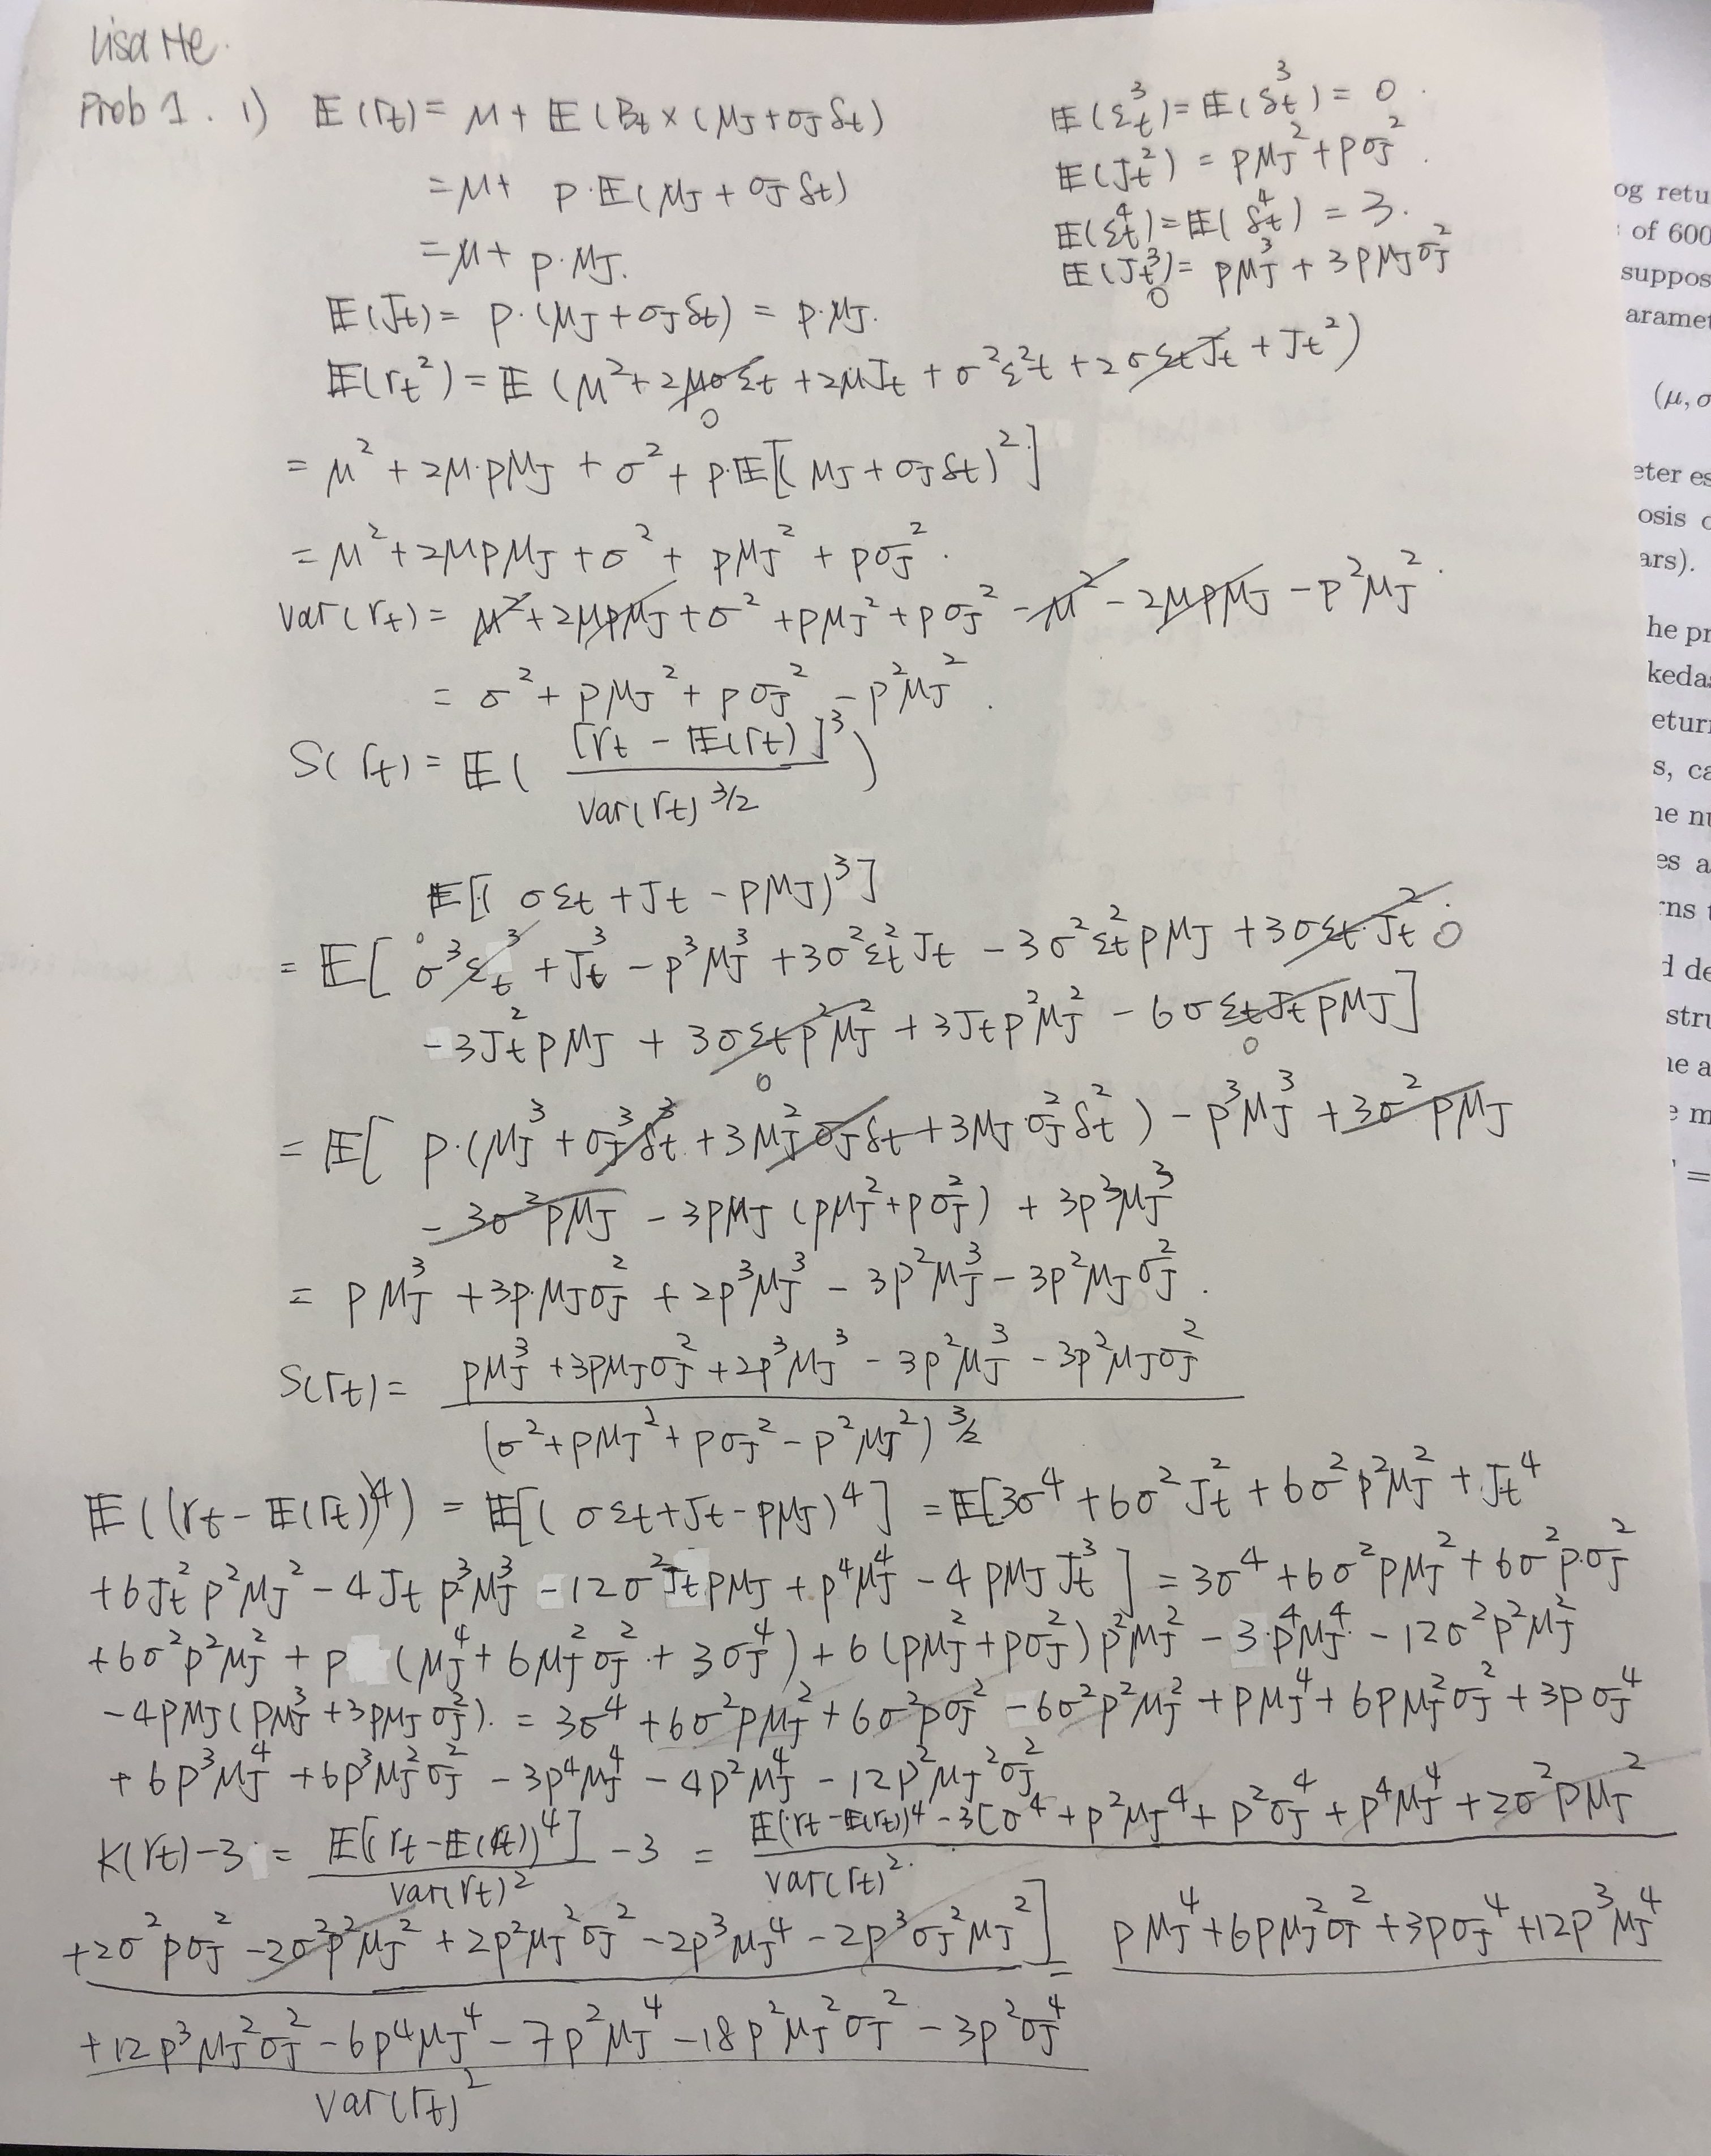 Lisa He.
Prob 1. 1) 𝔼(rt) = μ + 𝔼(Bt × (μJ + σJ δt)
= μ + p·𝔼(μJ + σJ δt)
= μ + p·μJ.
𝔼(εt³) = 𝔼(δt³) = 0.
𝔼(Jt²) = pμJ² + pσJ².
𝔼(εt⁴) = 𝔼(δt⁴) = 3.
𝔼(Jt³) = pμJ³ + 3pμJσJ²
0
𝔼(Jt) = p·(μJ + σJ δt) = p·μJ.
𝔼(rt²) = 𝔼(μ² + 2μσεt + 2μJt + σ²εt² + 2σεtJt + Jt²)
0
= μ² + 2μ·pμJ + σ² + p·𝔼[(μJ + σJ δt)²]
= μ² + 2μpμJ + σ² + pμJ² + pσJ².
var(rt) = μ² + 2μpμJ + σ² + pμJ² + pσJ² - μ² - 2μpμJ - p²μJ².
= σ² + pμJ² + pσJ² - p²μJ².
S(rt) = 𝔼( [rt - 𝔼(rt)]³ / var(rt)^3/2 )
𝔼[(σεt + Jt - pμJ)³]
= 𝔼[ σ³εt³ 0 + Jt³ - p³μJ³ + 3σ²εt²Jt - 3σ²εt²pμJ + 3σεtJt² 0
- 3Jt²pμJ + 3σεtp²μJ² + 3Jtp²μJ² - 6σεtJtpμJ]
0 0
= 𝔼[ p·(μJ³ + σJ³δt³ + 3μJ²σJδt + 3μJσJ²δt²) - p³μJ³ + 3σ²pμJ
- 3σ²pμJ - 3pμJ(pμJ² + pσJ²) + 3p³μJ³
= pμJ³ + 3p·μJσJ² + 2p³μJ³ - 3p²μJ³ - 3p²μJσJ².
S(rt) = pμJ³ + 3pμJσJ² + 2p³μJ³ - 3p²μJ³ - 3p²μJσJ²
(σ² + pμJ² + pσJ² - p²μJ²)^3/2
𝔼((rt - 𝔼(rt))⁴) = 𝔼[(σεt + Jt - pμJ)⁴] = 𝔼[3σ⁴ + 6σ²Jt² + 6σ²p²μJ² + Jt⁴
+ 6Jt²p²μJ² - 4Jtp³μJ³ - 12σ²JtpμJ + p⁴μJ⁴ - 4pμJJt³] = 3σ⁴ + 6σ²pμJ² + 6σ²p·σJ²
+ 6σ²p²μJ² + p(μJ⁴ + 6μJ²σJ² + 3σJ⁴) + 6(pμJ² + pσJ²)p²μJ² - 3·p⁴μJ⁴ - 12σ²p²μJ²
- 4pμJ(pμJ³ + 3pμJσJ²). = 3σ⁴ + 6σ²pμJ² + 6σ²pσJ² - 6σ²p²μJ² + pμJ⁴ + 6pμJ²σJ² + 3pσJ⁴
+ 6p³μJ⁴ + 6p³μJ²σJ² - 3p⁴μJ⁴ - 4p²μJ⁴ - 12p²μJ²σJ²
K(rt) - 3 = 𝔼[(rt - 𝔼(rt))⁴] / var(rt)² - 3 = 𝔼(rt - 𝔼(rt))⁴ - 3[σ⁴ + p²μJ⁴ + p²σJ⁴ + p⁴μJ⁴ + 2σ²pμJ²
var(rt)².
+ 2σ²pσJ² - 2σ²p²μJ² + 2p²μJ²σJ² - 2p³μJ⁴ - 2p³σJ²μJ²] = pμJ⁴ + 6pμJ²σJ² + 3pσJ⁴ + 12p³μJ⁴
+ 12p³μJ²σJ² - 6p⁴μJ⁴ - 7p²μJ⁴ - 18p²μJ²σJ² - 3p²σJ⁴
var(rt)²
og retu
of 600
suppos
aramet
(μ, σ
eter es
osis o
ars).
he pr
kedas
eturn
s, ca
he nu
es a
rns t
d de
stru
he a
e m
=